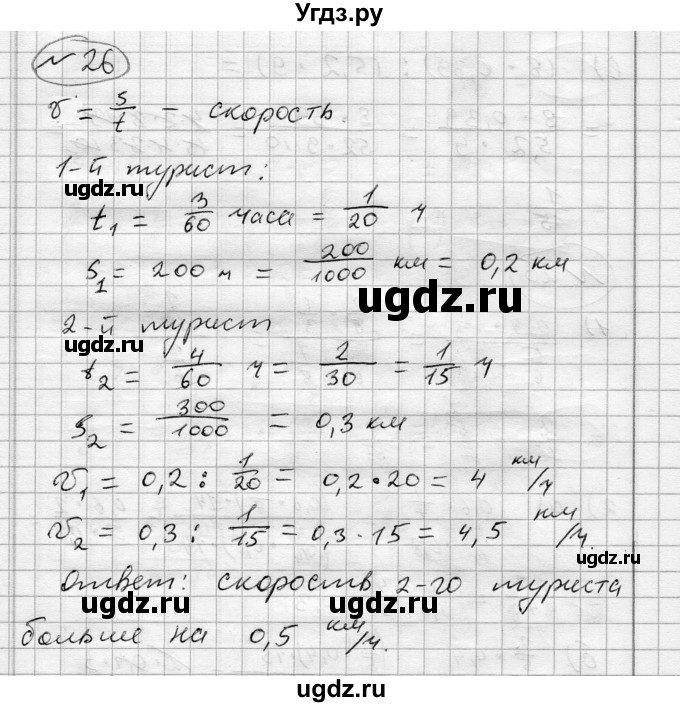 Угдз.ру
№ 26
v = s/t – скорость
1-й турист:
ugdz.ru ugdz.ru
t₁ = 3/60 часа = 1/20 ч
s₁ = 200 м = 200/1000 км = 0,2 км
ugdz.ru
2-й турист
t₂ = 4/60 ч = 2/30 = 1/15 ч
s₂ = 300/1000 = 0,3 км
ugdz.ru
v₁ = 0,2 : 1/20 = 0,2 · 20 = 4 км/ч
v₂ = 0,3 : 1/15 = 0,3 · 15 = 4,5 км/ч.
Ответ: скорость 2-го туриста
ugdz.ru ugdz.ru
больше на 0,5 км/ч.
ugdz.ru